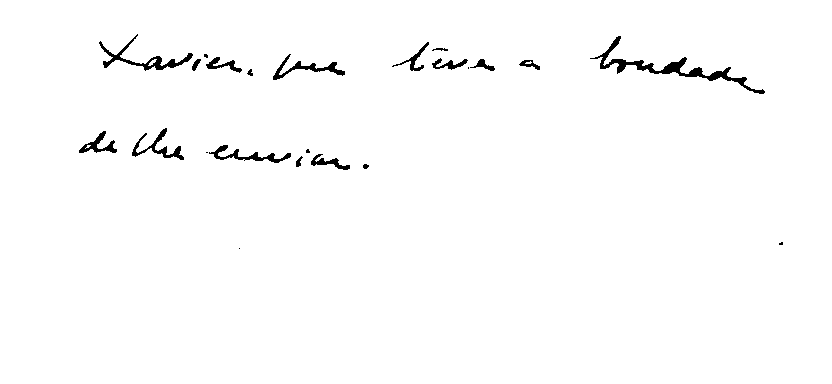 Xavier, que teve a bondade
de lhe enviar.